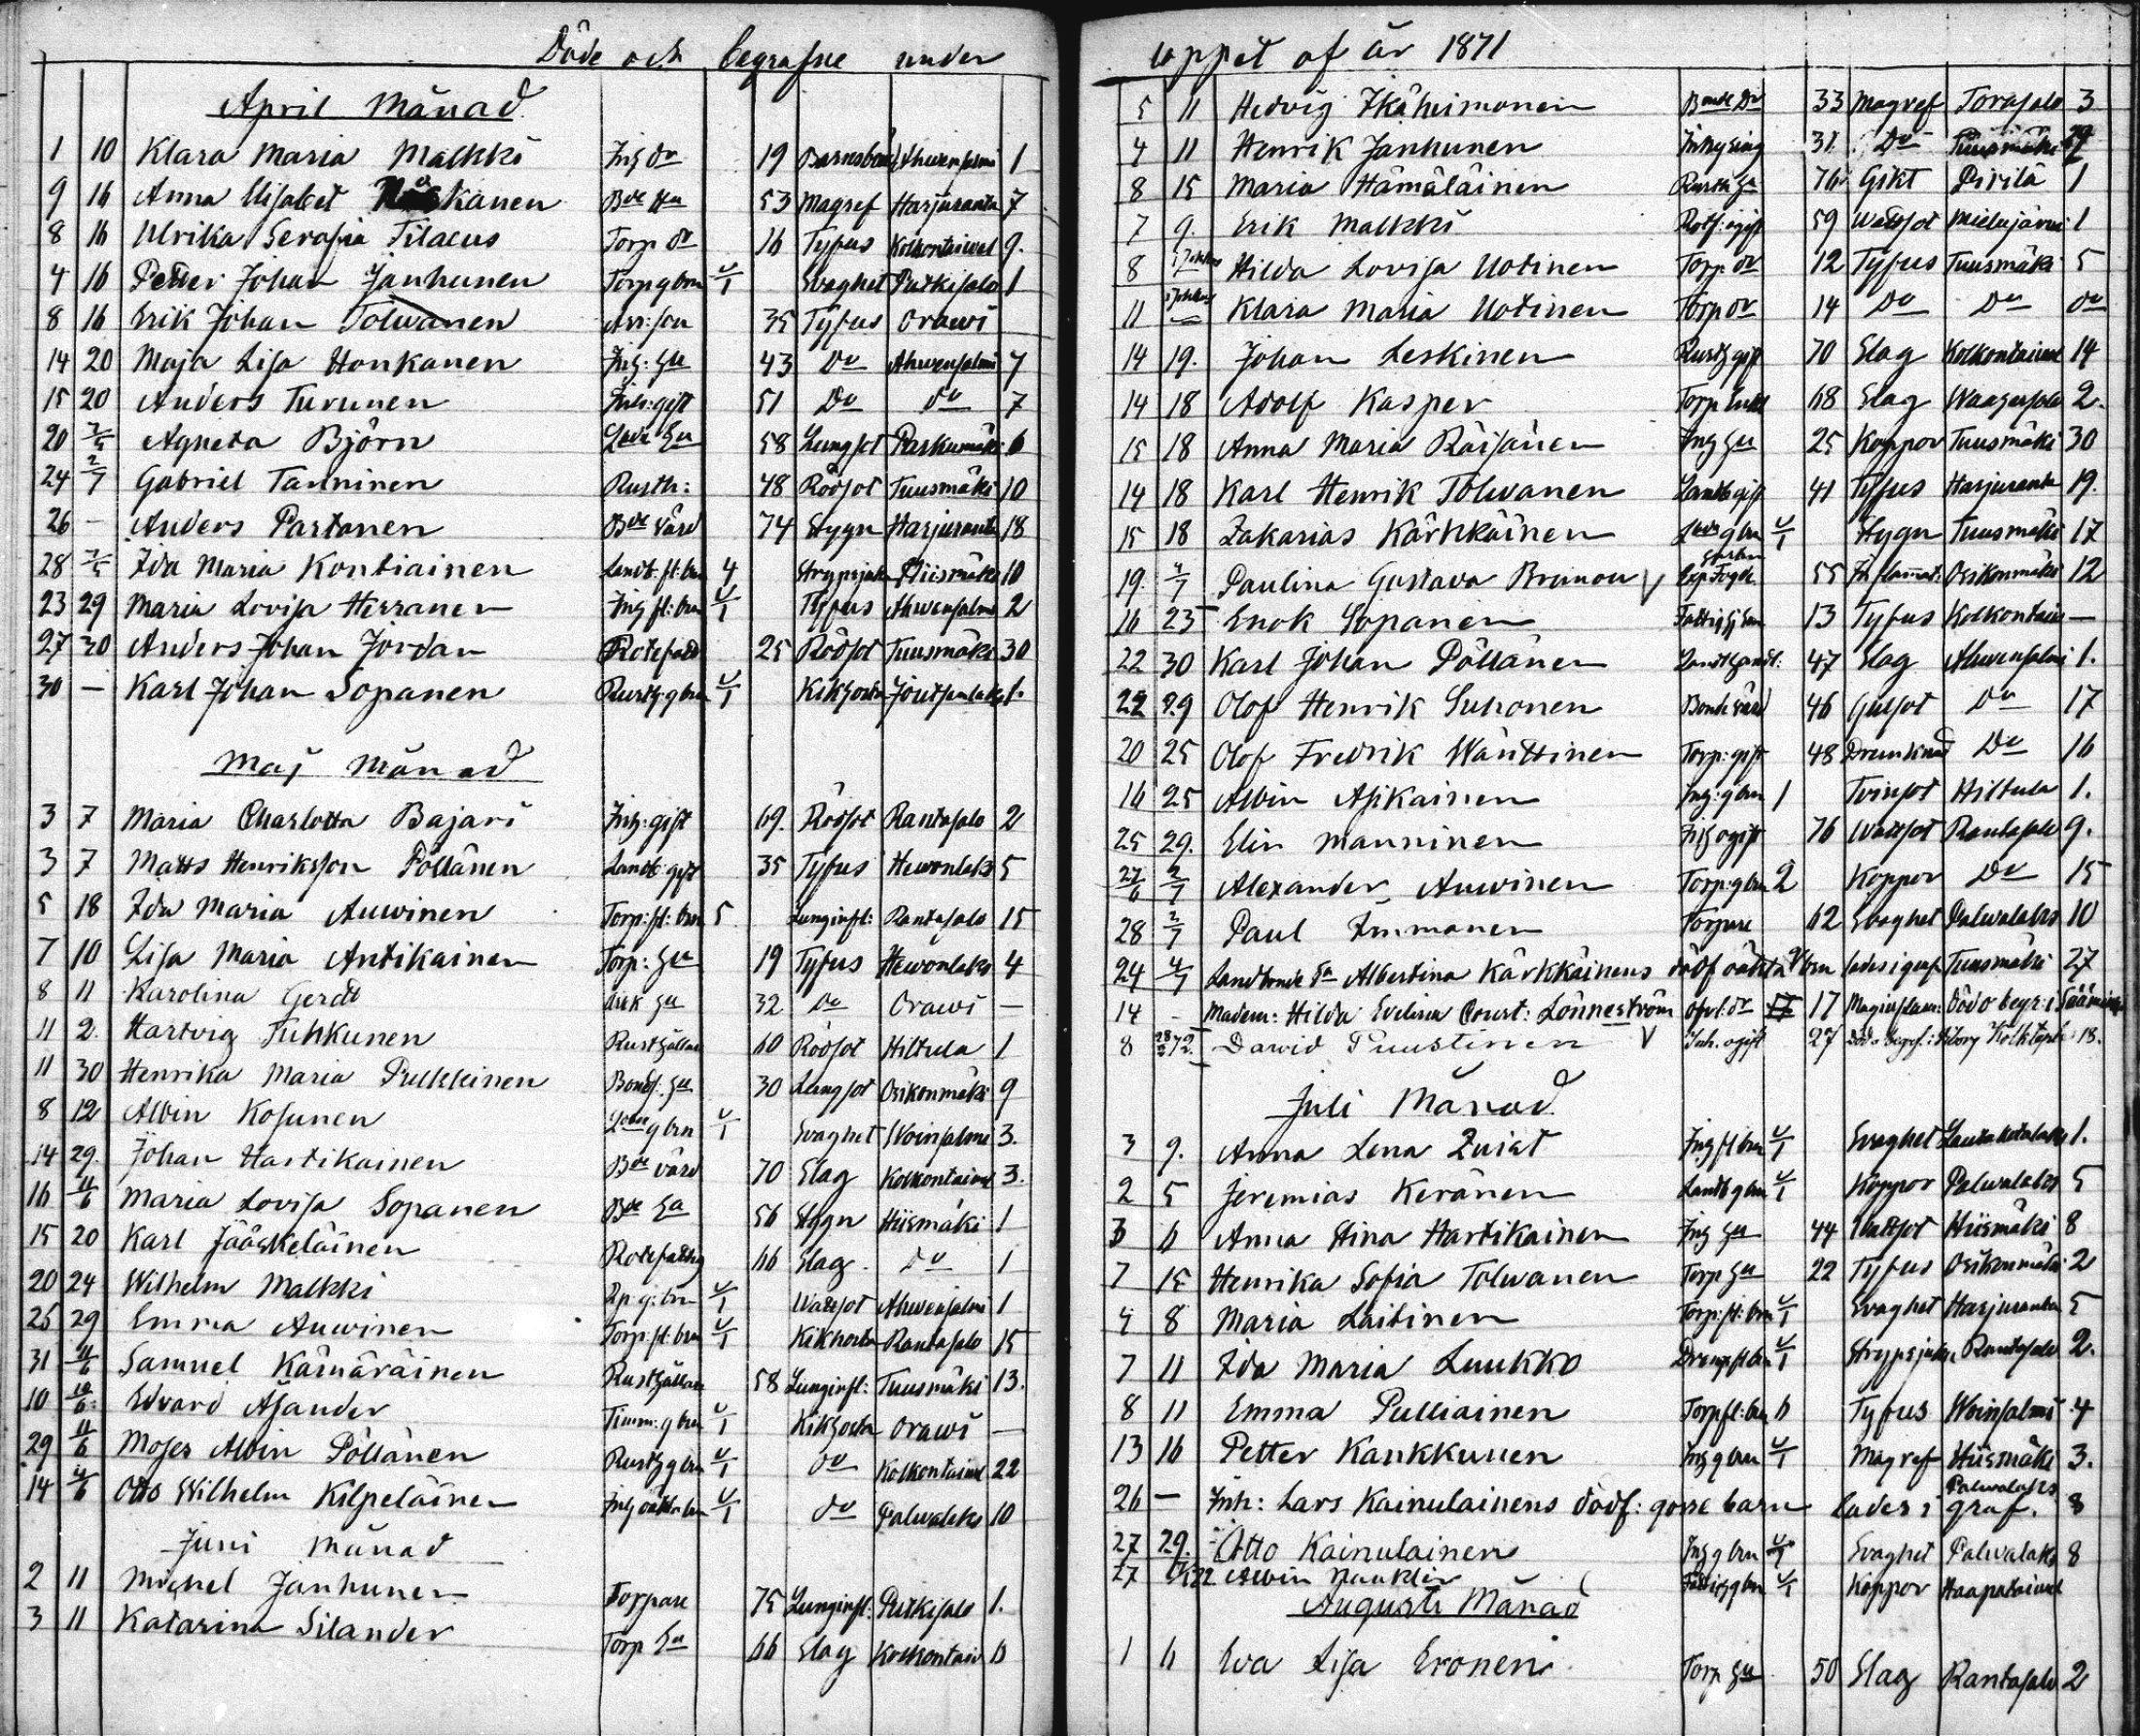 Döde och begrafne under
April Månad
1 10 Klara Maria Malkki Inh dr 19 Barnsbörd Ahvensalmi 1
9 16 Anna Elisabet kanen Bde Hu 53 Magref Harjuranta 7
8 16 Ulrika Serafia Tilaeus Torp dr 16 Tyfus Kolkontaival 9.
4 16 Petter Johan Janhunen Torp g brn Svaghet Putkisalo 1
8 16 Erik Johan Tolwanen Arr: son 35 Tyfus Orawi
14 20 Maja Lisa Honkanen Inh: Hu 43 Do Ahvensalmi 7
15 20 Anders Turunen Inh: gift 51 Do do 7
20 7/5 Agneta Björn Hu 58 Lungsot Paskumäki 6
24 2/7 Gabriel Tanninen Rusth: 48 Rödsot Tuusmäki 10
26 — Anders Partanen Bde värd 74 Stygn Harjuranta 18
28 7/5 Ida Maria Kontiainen Landb. fl: brn 4 Strypsjuk Hiismäki 10
23 29 Maria Lovisa Herranen Inh fl: brn Tyfus Ahvensalmi 2
27 30 Anders Johan Jordan Rotefatt 25 Rödsot Tuusmäki 30
30 — Karl Johan Sopanen Rusth: g brn Kikhosta 1.
Maj Månad
3 7 Maria Charlotta Bajari Inh: gift 69. Rödsot Rantasalo 2
3 7 Matts Henriksson Pöllänen Landb: gift 35 Tyfus Hewonlaks 5
5 18 Ida Maria Auwinen Torp: fl: brn 5 Lunginfl: Rantasalo 15
7 10 Lisa Maria Antikainen Torp: Hu 19 Tyfus Hewonlaks 4
8 11 Karolina Gerdt Hu 32 do Orawi —
11 2. Hartvig Tuhkunen Rusthållare 60 Rödsot Hiltula 1
11 30 Henrika Maria Pulkkinen Bond: Hu 30 Lungsot Osikonmäki 9
8 12 Alvin Kosunen g brn Svaghet Woinsalmi 3.
14 29. Johan Hartikainen Bde värd 70 Slag Kolkontaival 3.
16 11/6 Maria Lovisa Sopanen Bde Hu 56 Stygn Hiismäki 1
15 20 Karl Jääskeläinen Rotefattig 66 Slag do 1
20 24 Wilhelm Malkki g: brn Wattsot Ahvensalmi 1
25 29 Emma Auwinen Torp: fl: brn Kikhosta Rantasalo 15
31 11/6 Samuel Kämäräinen Rusthållare 58 Lunginfl: Tuusmäki 13.
10 Edvard Åsander Timm: g brn Kikhosta Orawi —
29 11/6 Moses Alvin Pöllänen Rusth g brn do Kolkontaival 22
14 Otto Wilhelm Kilpeläinen Inh oäkta brn do Palvalaks 10
Juni Månad
2 11 Michel Janhunen Torpare 75 Lunginfl: Putkisalo 1.
3 11 Katarina Silander Torp Hu 66 Slag Kolkontaiv 6
loppet af år 1871
5 11 Hedvig Ikäheimonen Bonde Dr 33 Magref Torasalo 3
4 11 Henrik Janhunen 31 Do Tuusmäki 29
8 15 Maria Hämäläinen Rusth Hu 76 Gikt Pirilä 1
7 9. Erik Malkki Rotf: ogift 59 Wattsot Mielujärvi 1
8 Hilda Lovisa Uotinen Torp dr 12 Tyfus Tuusmäki 5
11 Klara Maria Uotinen Torp dr 14 Do Do do
14 19. Johan Leskinen Rusth gift 70 Slag Kolkontaival 14
14 18 Adolf Kasper Torp Enkl 68 Slag 2.
15 18 Anna Maria Räisänen Inh Hu 25 Koppor Tuusmäki 30
14 18 Karl Henrik Tolwanen Landb gift 41 Tyfus Harjuranta 19.
15 18 Zakarias Kärkkäinen g brn Stygn Tuusmäki 17
19. 4/7 Paulina Gustava Brunou V Exp Fogde 55 Inflamat: Osikonmäki 12
16 25 Enok Sopanen Fattig 13 Tyfus Kolkontaiv —
22 30 Karl Johan Pöllänen 47 Slag Ahvensalmi 1.
22 29 Olof Henrik Suhonen Bonde värd 46 Gulsot do 17
20 25 Olof Fredrik Wänttinen Torp: gift 48 Drunknad Do 16
16 25 Alvin Asikainen Inh: g brn 1 Tvinsot Hiltula 1.
25 29. Elin Manninen Inh ogift 76 Wattsot Rantasalo 9.
27/6 2/7 Alexander Auwinen Torp: g brn 2 Koppor Do 15
28 2/7 Paul Immonen Torpare 62 Svaghet Palvalaks 10
24 4/7 Landbonde Da Albertina Kärkkäinens dödf oäkta brn lades i graf Tuusmäki 27
14 - Madem: Hilda Evelina Const: Lönneström dr 17 Maginflam: Död o begr: i Sääminge
8 28/2 72. Dawid Puustinen V Inh. ogift 27 Död o begraf: i Wiborg 18.
Juli Månad
3 9. Anna Lena Zuist Inh fl brn Svaghet 1.
2 5 Jeremias Keränen Landb g brn Koppor Palvalaks 5
3 6 Anna Stina Hartikainen Inh Hu 44 Wattsot Hiismäki 8
7 15 Henrika Sofia Tolwanen Torp Hu 22 Tyfus Osikonmäki 2
4 8 Maria Laitinen Torp: fl: brn Svaghet Harjuranta 5
7 11 Ida Maria Luukko Dreng fl brn Strypsjuka Rantasalo 2.
8 11 Emma Pulliainen Torp fl: brn 6 Tyfus Woinsalmi 4
13 16 Petter Kankkunen Inh g brn Magref Hiismäki 3.
26 — Inh: Lars Kainulainens dödf: gosse barn lades i graf. Palvalaks 8
27 29. Otto Kainulainen Inh g brn Svaghet Palvalaks 8
27 Alvin Naukler Fattig g brn Koppor Haapataival
Augusti Månad
1 6 Eva Lisa Eronen Torp Hu 50 Slag Rantasalo 2